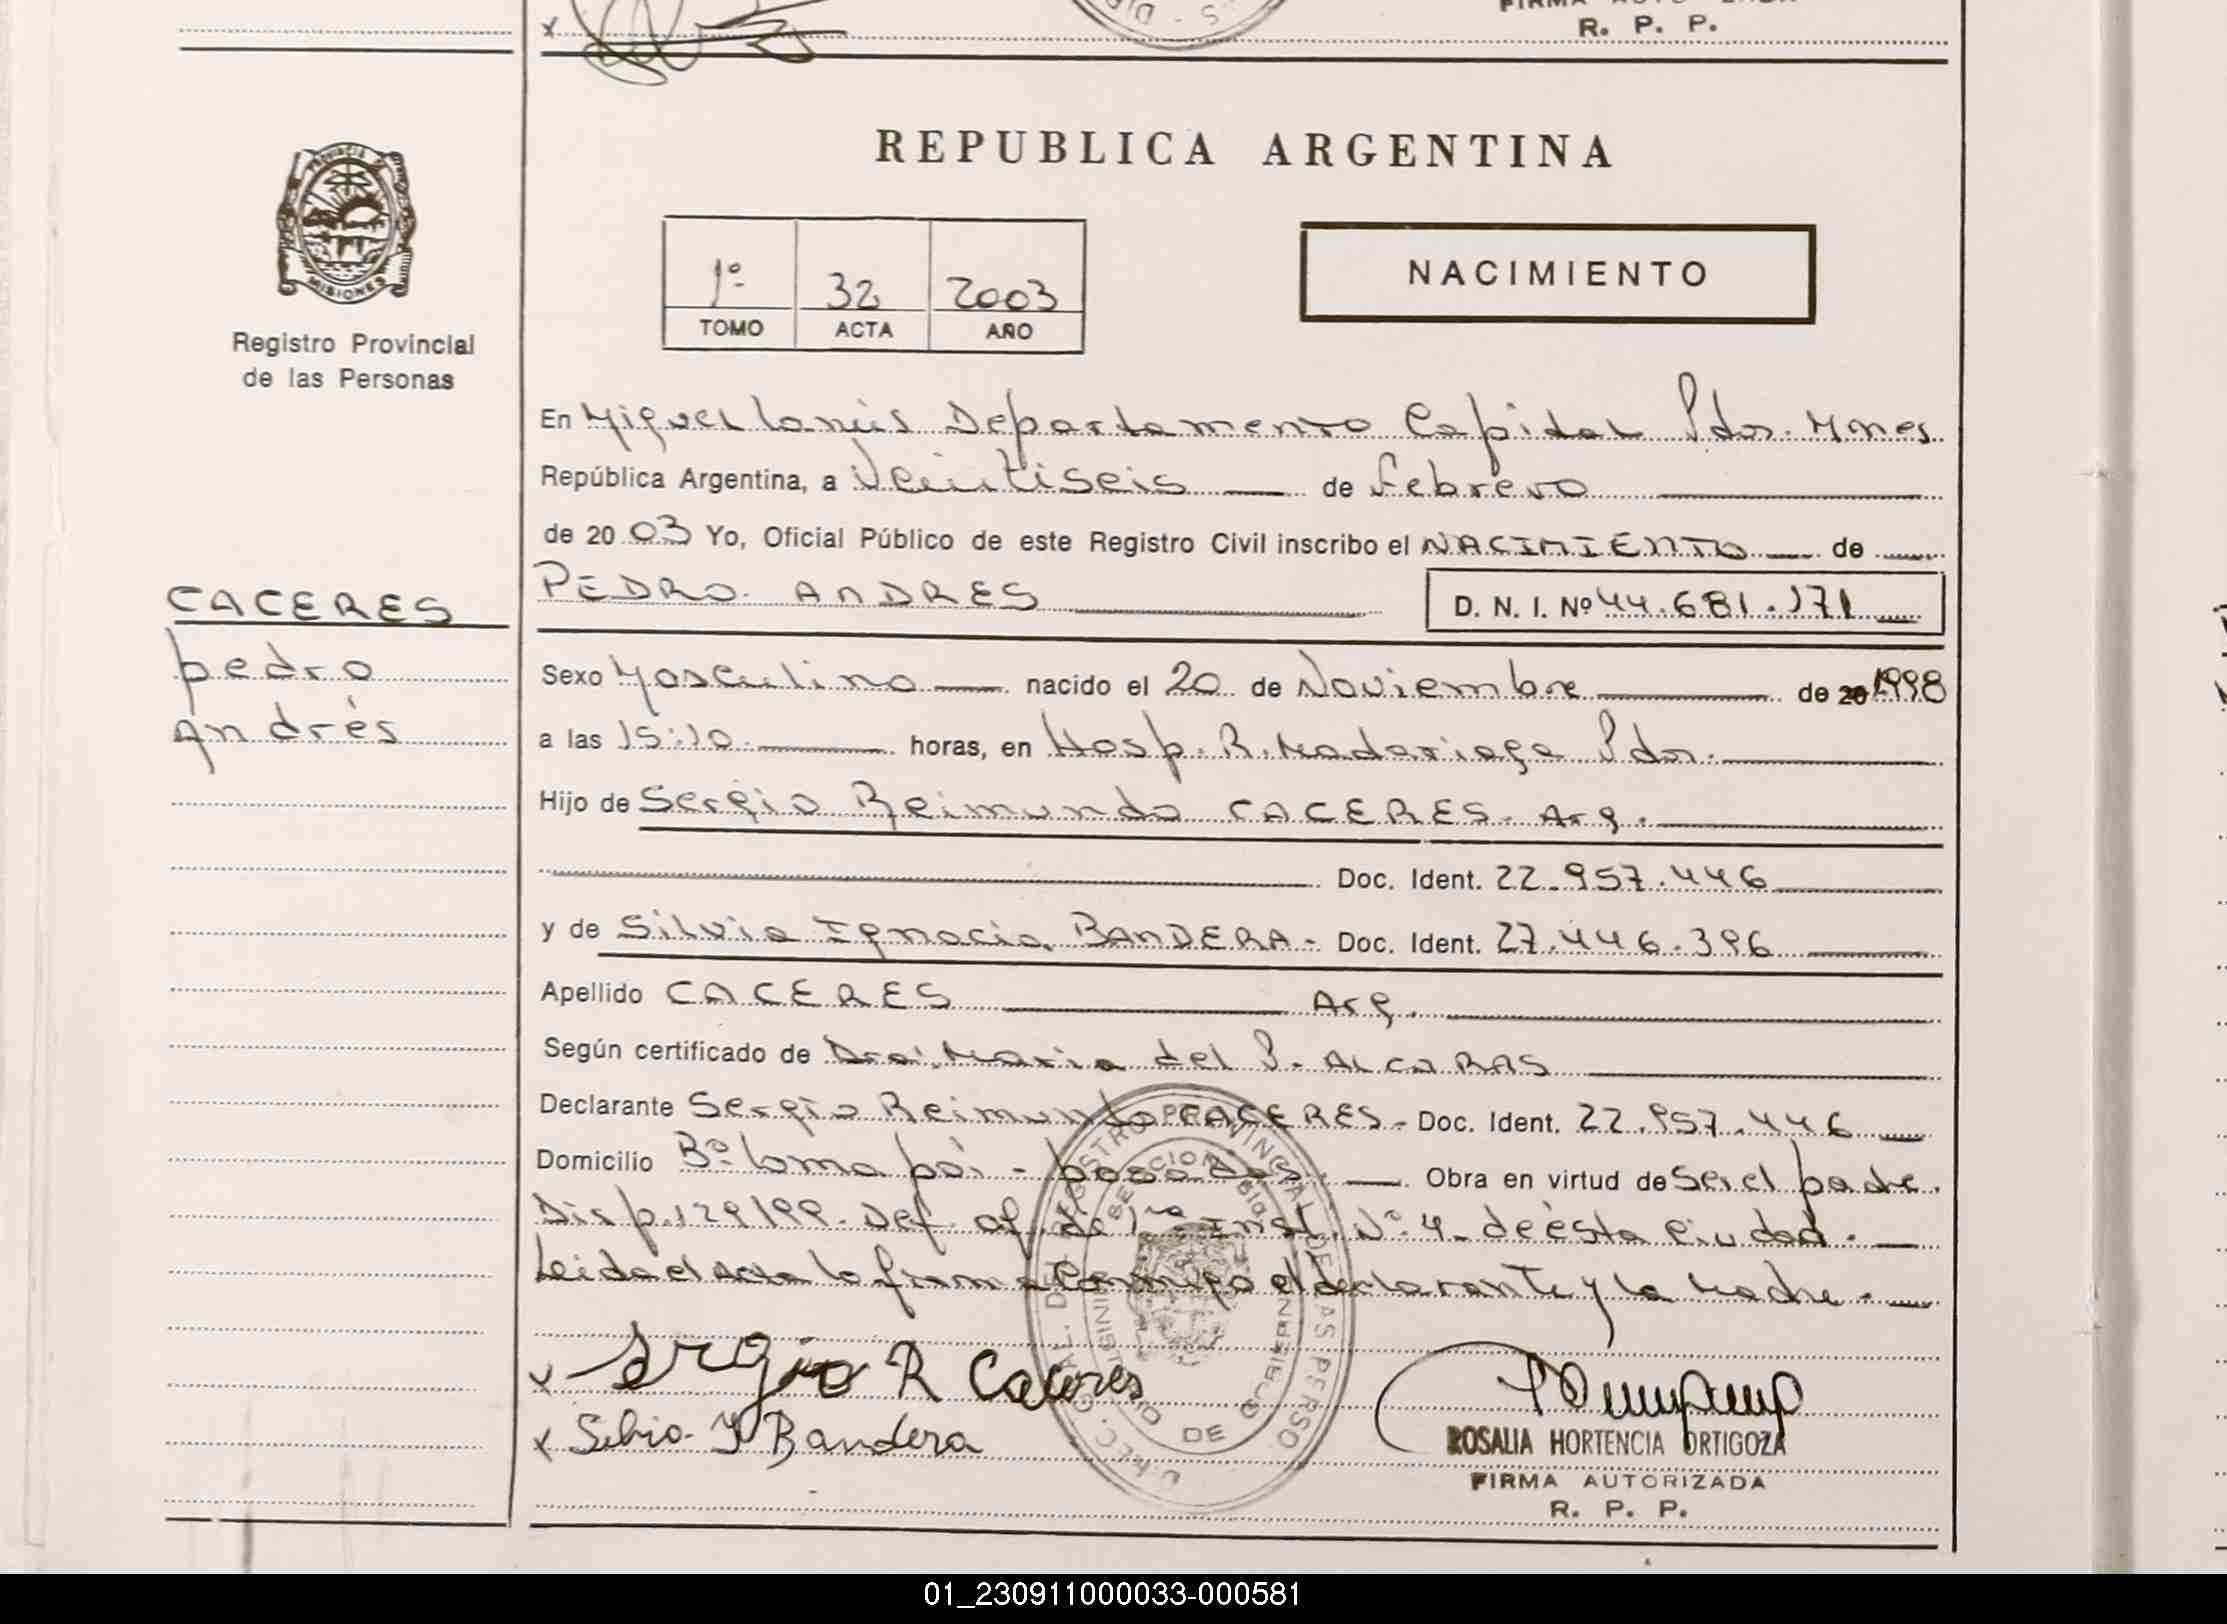 FIRMA AUTORIZADA
R. P. P.
PROVINCIA DE
MISIONES
Registro Provincial
de las Personas
CACERES
pedro
Andrés
REPUBLICA ARGENTINA
1º 32 2003
TOMO ACTA AÑO
NACIMIENTO
En Miguel Lanús Departamento Capital Pdas. Mnes.
República Argentina, a Veintiseis de Febrero
de 20 03 Yo, Oficial Público de este Registro Civil inscribo el NACIMIENTO de
PEDRO ANDRES D. N. I. Nº 44.681.171
Sexo Masculino nacido el 20 de Noviembre de 20 1998
a las 15:10 horas, en Hosp. R. Madariaga Pdas.
Hijo de Sergio Reimundo CACERES. Arg.
Doc. Ident. 22.957.446
y de Silvia Ignacia BANDERA- Doc. Ident. 27.446.396
Apellido CACERES Arg.
Según certificado de Dra. Maria del P. ALCARAS
Declarante Sergio Reimundo CACERES- Doc. Ident. 22.957.446
Domicilio Bº Loma poi - posadas. Obra en virtud de Ser el padre.
Disp. 129/99. Def. of. de 1ra Inst. Nº 4. de ésta Ciudad.
Leida el Acta la firman Conmigo el declarante y la Madre.
x Sergio R Caceres
x Silvia I Bandera
ROSALIA HORTENCIA ORTIGOZA
FIRMA AUTORIZADA
R. P. P.
01_230911000033-000581